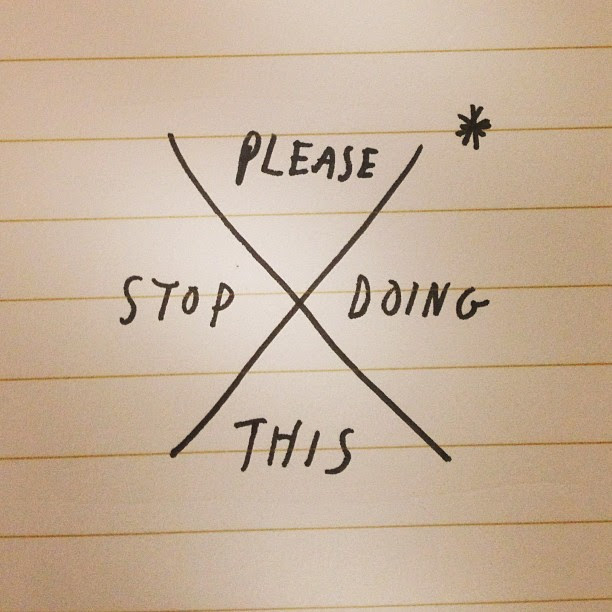 PLEASE *
STOP DOING
THIS